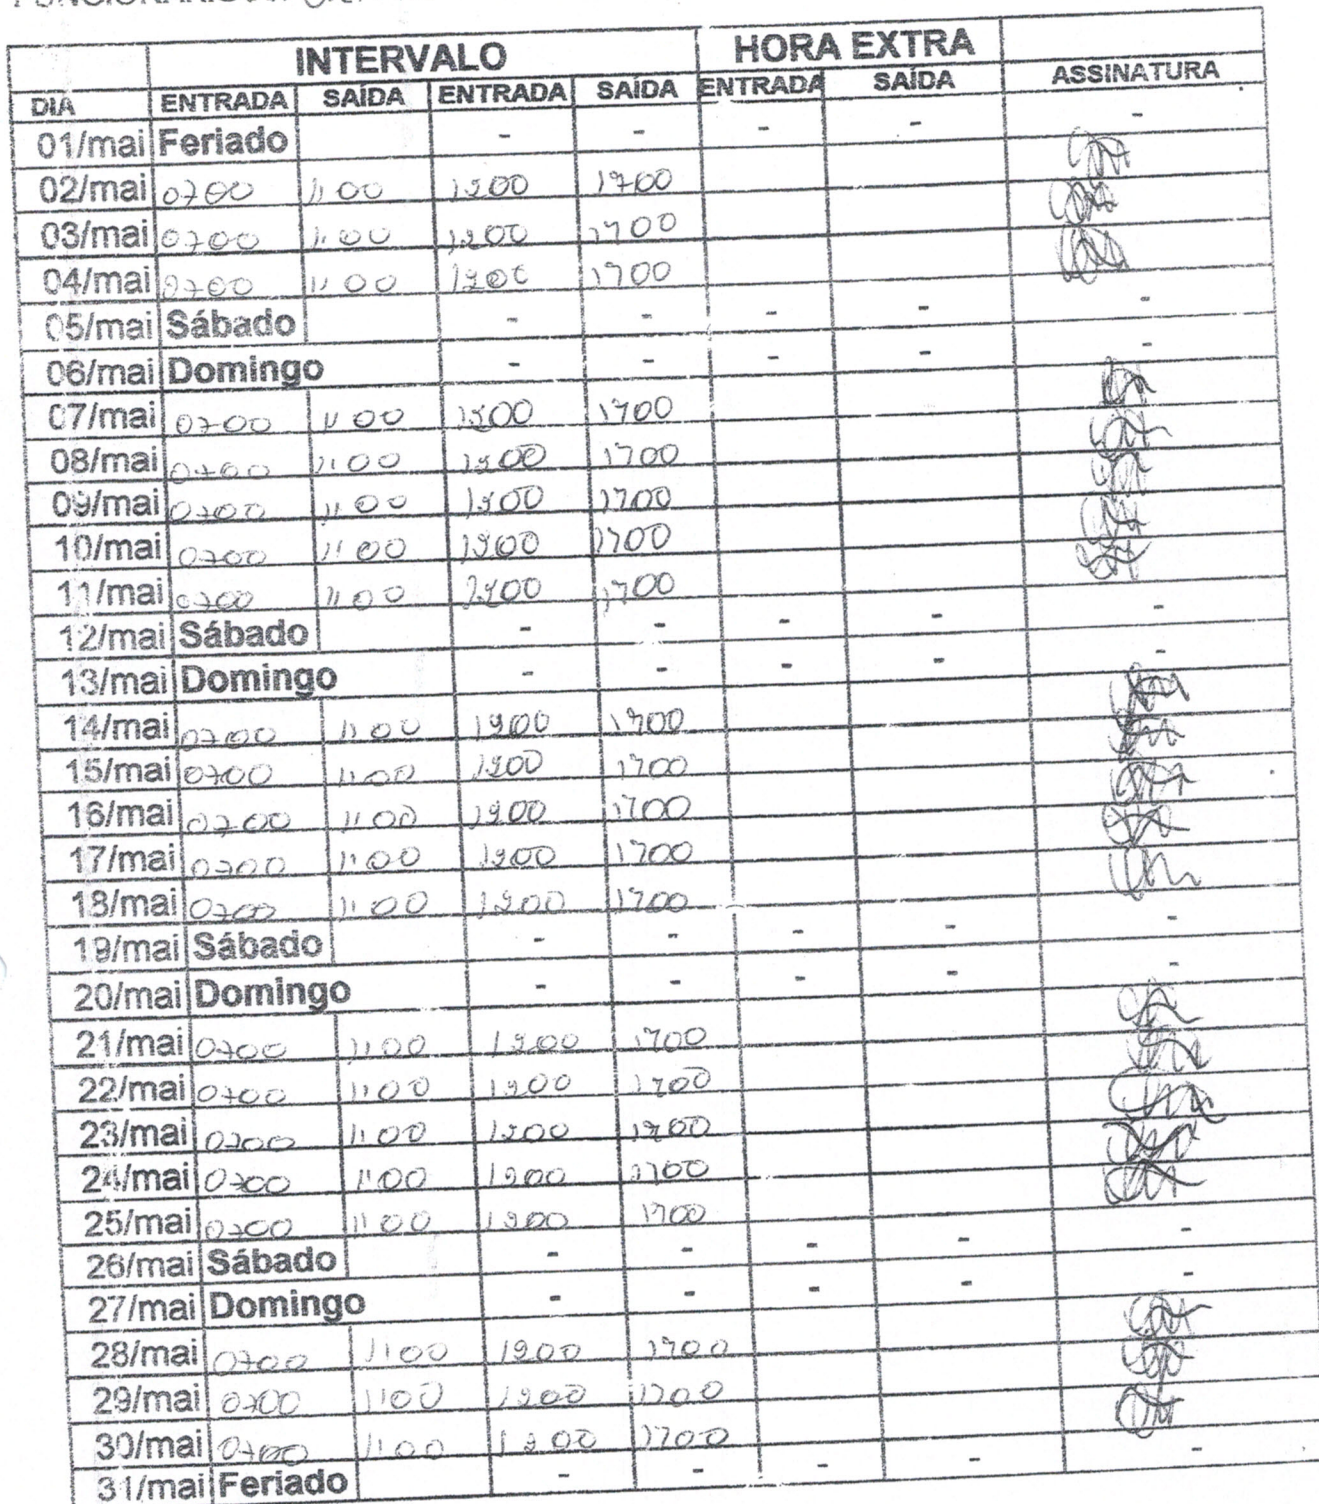 INTERVALO HORA EXTRA
DIA ENTRADA SAÍDA ENTRADA SAÍDA ENTRADA SAÍDA ASSINATURA
01/mai Feriado - - - - -
02/mai 0700 1100 1200 1700
03/mai 0700 1100 1200 1700
04/mai 0700 1100 1200 1700
05/mai Sábado - - - - -
06/mai Domingo - - - - -
07/mai 0700 1100 1200 1700
08/mai 0700 1100 1200 1700
09/mai 0700 1100 1200 1700
10/mai 0700 1100 1200 1700
11/mai 0700 1100 1200 1700
12/mai Sábado - - - - -
13/mai Domingo - - - - -
14/mai 0700 1100 1200 1700
15/mai 0700 1100 1200 1700
16/mai 0700 1100 1200 1700
17/mai 0700 1100 1200 1700
18/mai 0700 1100 1200 1700
19/mai Sábado - - - - -
20/mai Domingo - - - - -
21/mai 0700 1100 1200 1700
22/mai 0700 1100 1200 1700
23/mai 0700 1100 1200 1700
24/mai 0700 1100 1200 1700
25/mai 0700 1100 1200 1700
26/mai Sábado - - - - -
27/mai Domingo - - - - -
28/mai 0700 1100 1200 1700
29/mai 0700 1100 1200 1700
30/mai 0700 1100 1200 1700
31/mai Feriado - - - - -